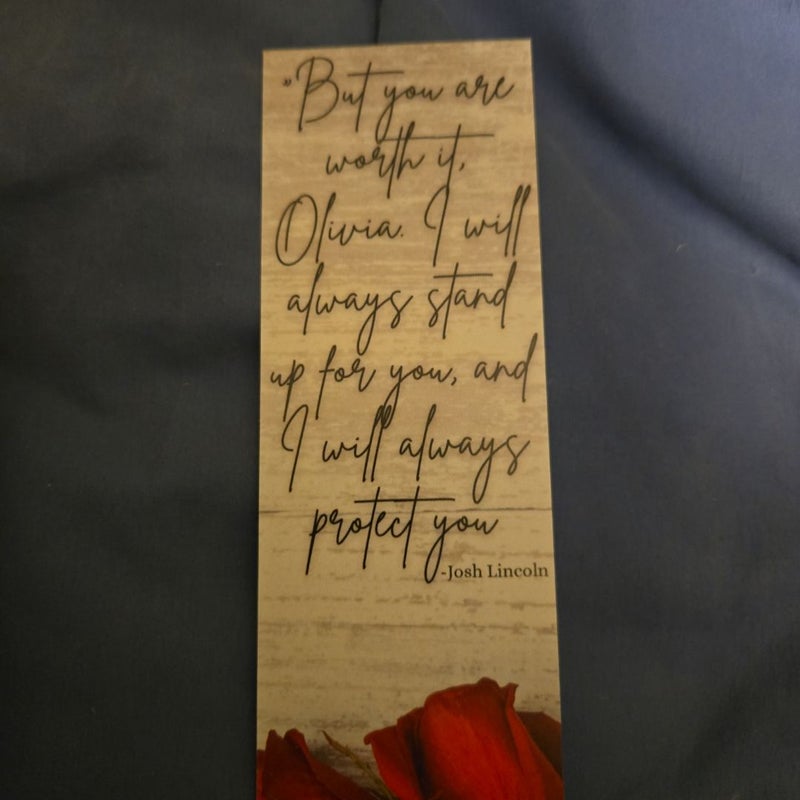 "But you are
worth it,
Olivia. I will
always stand
up for you, and
I will always
protect you
-Josh Lincoln